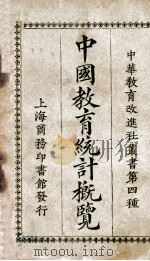 中華教育改進社叢書第四種
中國教育統計概覽
上海商務印書館發行
www.mtoou.info